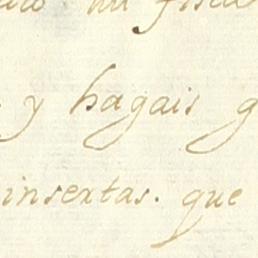 mi fisca
y hagais g
insertas. que